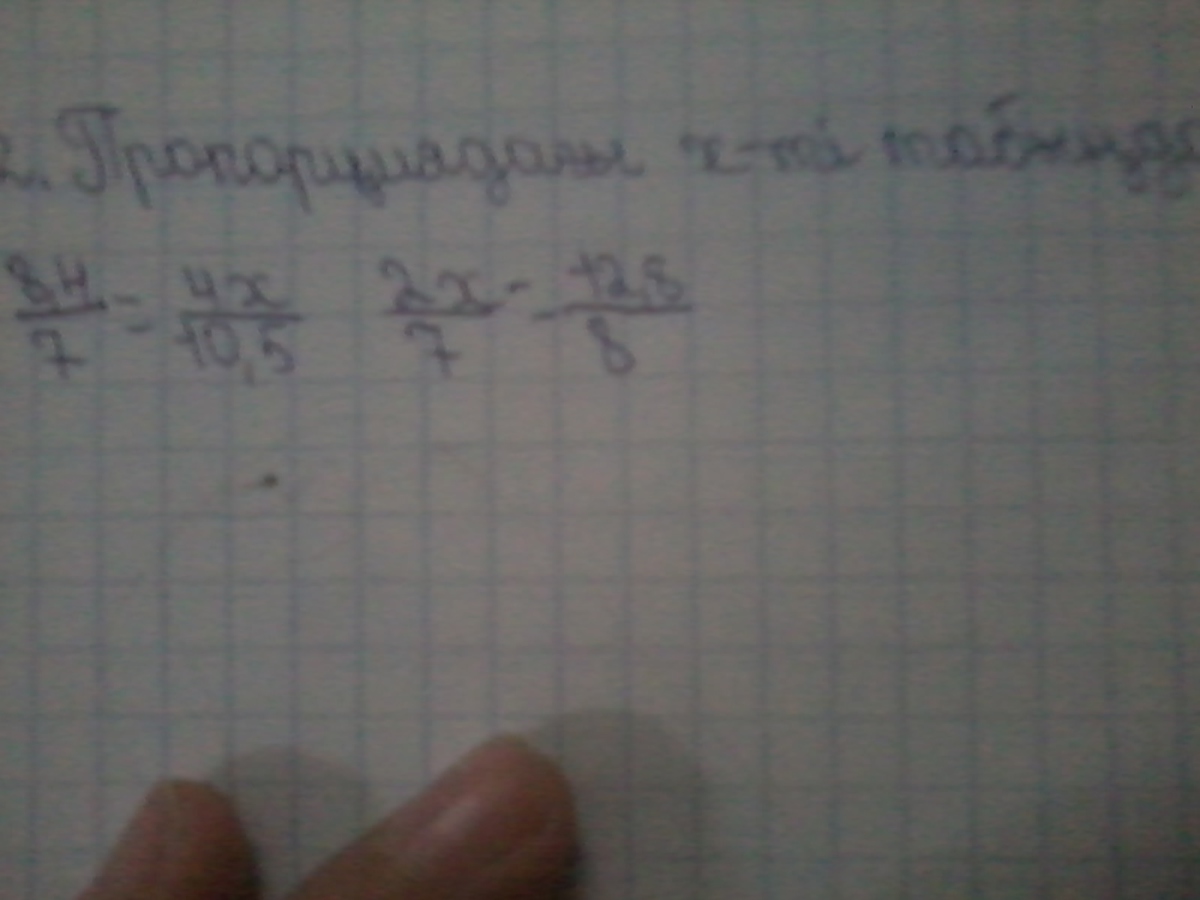 2. Пропорциядагы x-ти табыңыз
8,4/7 = 4x/10,5   2x/7 = 12,8/8